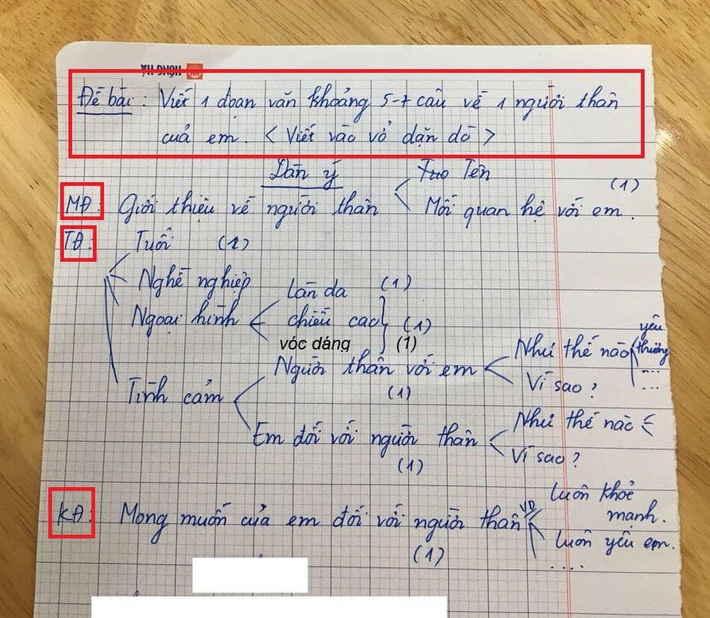 HỒNG HÀ
Đề bài: Viết 1 đoạn văn khoảng 5-7 câu về 1 người thân
của em. < Viết vào vở dặn dò >
Dàn ý
Tên
MĐ: Giới thiệu về người thân (1)
Mối quan hệ với em.
TĐ: Tuổi (1)
Nghề nghiệp
Làn da (1)
Ngoại hình chiều cao (1)
vóc dáng (1)
yêu thương
Người thân với em (1) Như thế nào
Vì sao? ....
Tình cảm
Em đối với người thân (1) Như thế nào
Vì sao?
luôn khoẻ
mạnh.
KĐ: Mong muốn của em đối với người thân (1) VD
luôn yêu em.
....